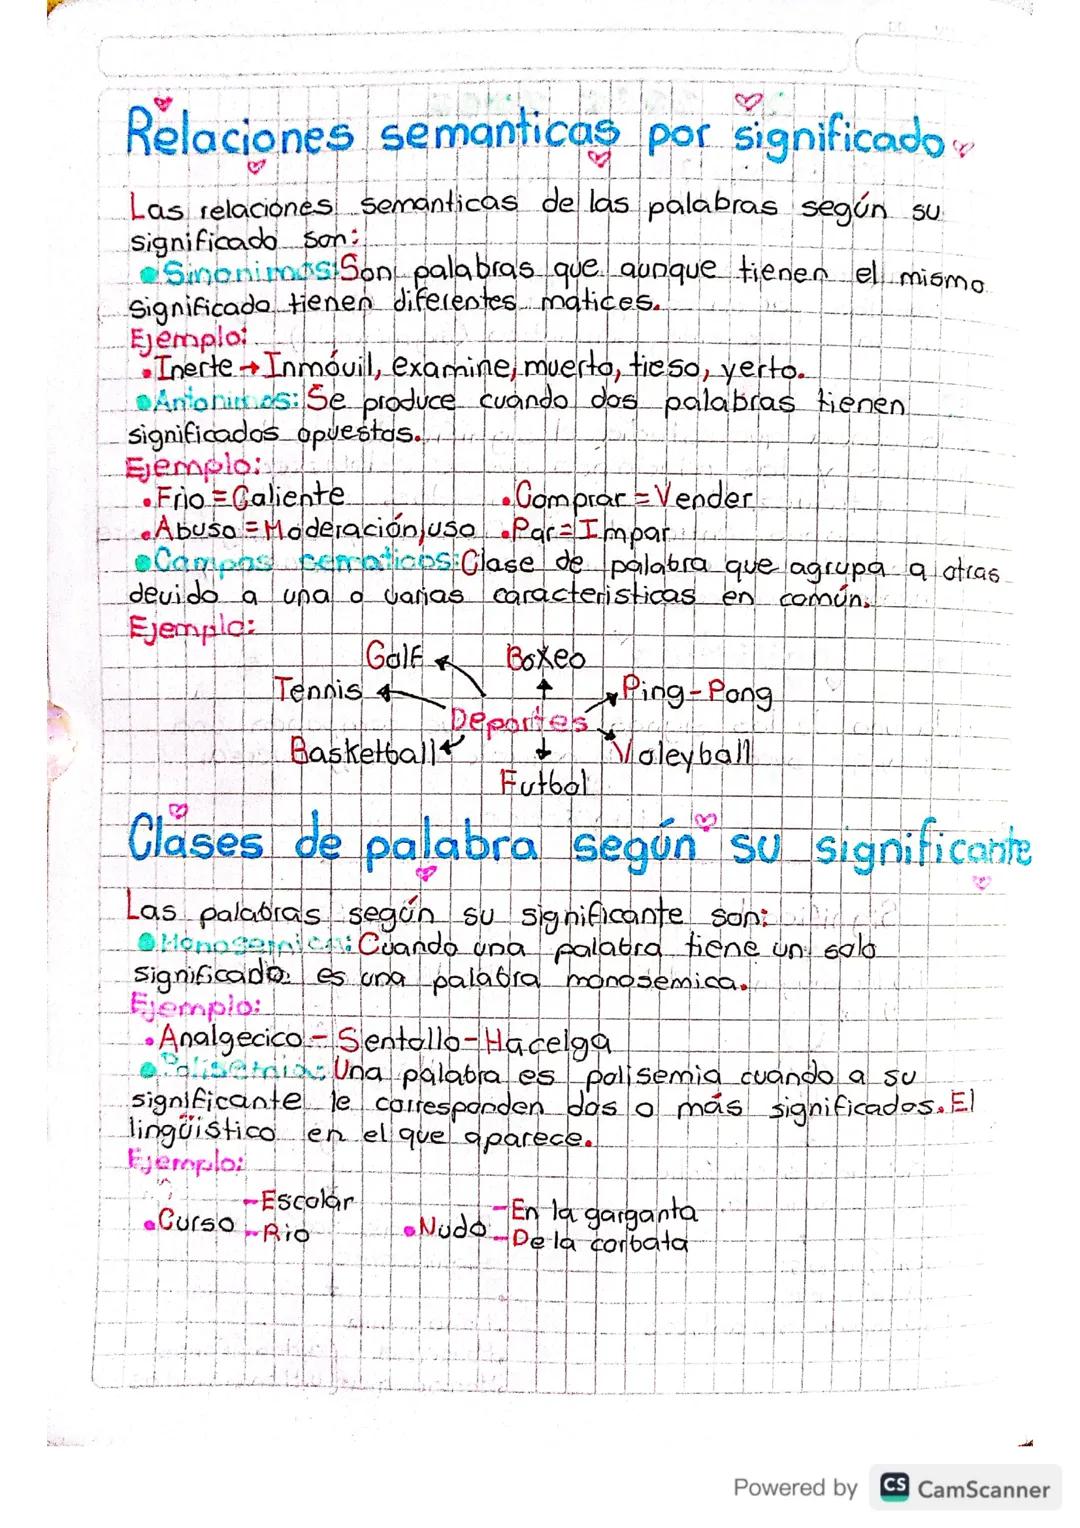 Relaciones semanticas por significado
Las relaciones semanticas de las palabras según su
significado son:
Sinonimos: Son palabras que aunque tienen el mismo
significado tienen diferentes matices.
Ejemplo:
Inerte → Inmóvil, examine, muerto, tieso, yerto.
Antonimos: Se produce cuando dos palabras tienen
significados opuestos.
Ejemplo:
Frio = Caliente Comprar = Vender
Abuso = Moderación, uso Par = Impar
Campos sematicos: Clase de palabra que agrupa a otras
devido a una o varias caracteristicas en común.
Ejemplo:
Golf Boxeo
Tennis Ping-Pong
Deportes
Basketball Voleyball
Futbol
Clases de palabra según su significante
Las palabras según su significante son:
Monosemica: Cuando una palabra tiene un solo
significado es una palabra monosemica.
Ejemplo:
Analgecico - Sentollo - Hacelga
Polisemia: Una palabra es polisemia cuando a su
significante le corresponden dos o más significados. El
lingüistico en el que aparece.
Ejemplo:
-Escolar -En la garganta
Curso Nudo
-Rio -De la corbata
Powered by CS CamScanner